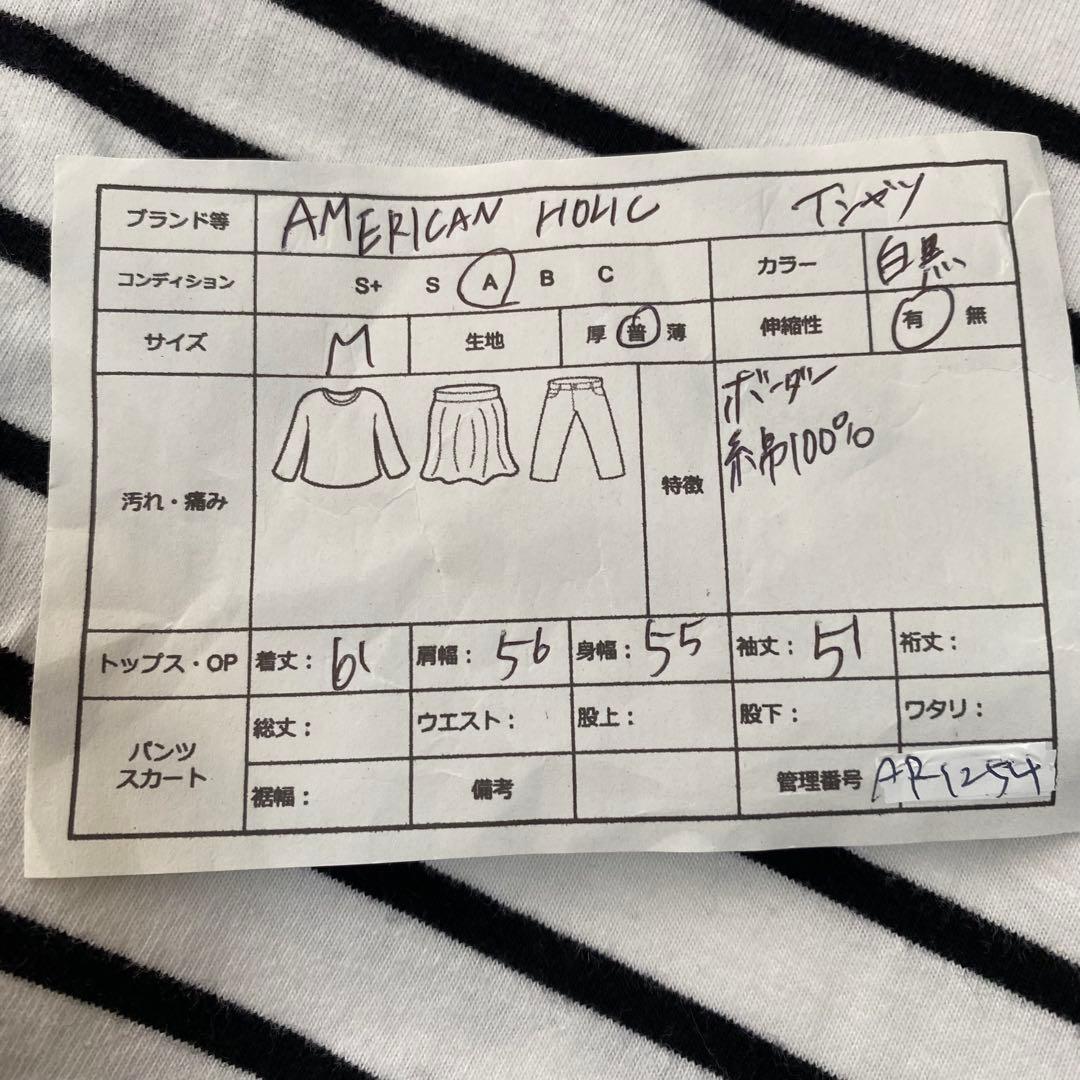 ブランド等 AMERICAN HOLIC Tシャツ
コンディション S+ S A B C カラー 白黒
サイズ M 生地 厚 普 薄 伸縮性 有 無
汚れ・痛み 特徴 ボーダー
綿100%
トップス・OP 着丈: 61 肩幅: 56 身幅: 55 袖丈: 51 裄丈:
パンツ スカート 総丈: ウエスト: 股上: 股下: ワタリ:
裾幅: 備考 管理番号 AR1254